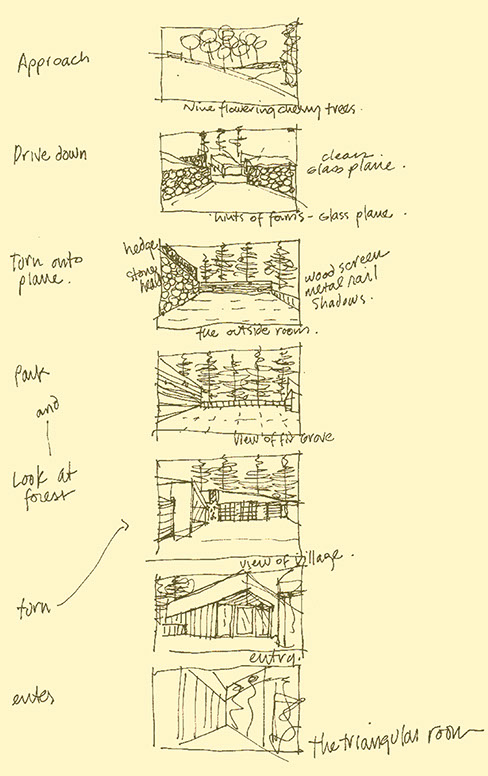 Approach
Nine flowering cherry trees.
Drive down
clear
Glass plane.
hints of forms - Glass plane.
Turn onto
plane.
hedge
stone
wood screen
metal rail
shadows.
the outside room.
Park
and
view of fir grove
Look at
forest
view of village.
turn
entry.
enter
the triangular room